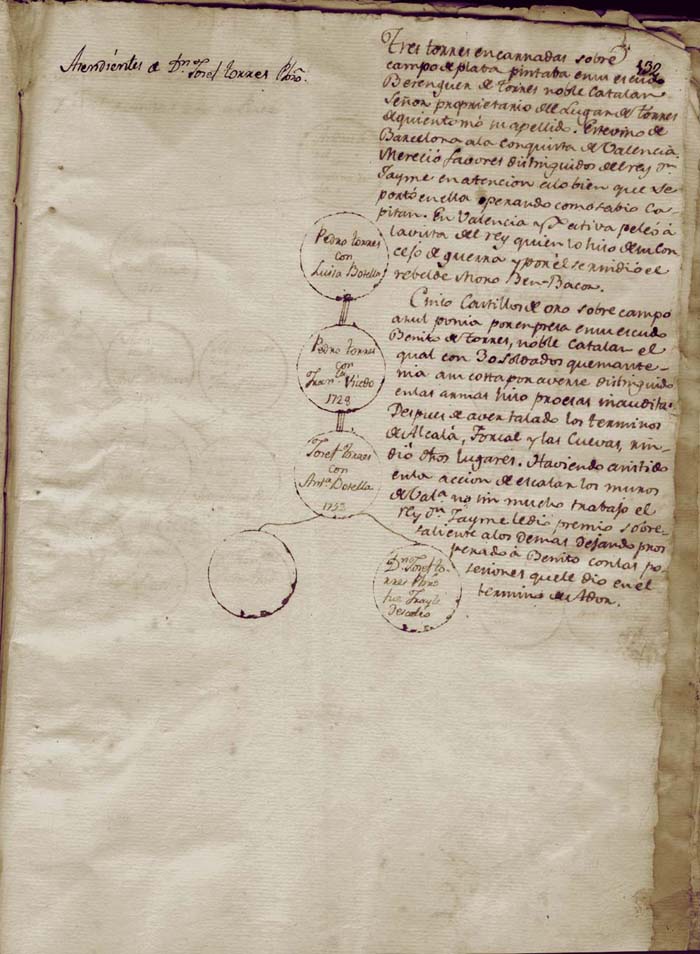 132
Atendientes de Dn Josef torres Pbro.
Tres torres encarnadas sobre
campo de plata pintaba en su escudo
Berenguer de torres noble Catalan
Señor proprietario del Lugar de torres
de quien tomó su apellido. Este vino de
Barcelona a la conquista de Valencia.
Mereció favores distinguidos del rey Dn
Jayme en atencion a lo bien que se
portó en ella operando como sabio Ca-
pitan. En Valencia y Xativa peleó à
la vista del rey quien lo hizo de su Con
cejo de guerra y por el se rindió el
rebelde Moro Ben-Bacon.
Cinco Castillos de oro sobre campo
azul ponia por enpresa en su escudo
Benito de torres, noble Catalan el
qual con 30 soldados que mante-
nia a su costa por averse distinguido
en las armas hizo proesas inauditas.
Despues de aver talado los terminos
de Alcalá, Forcal y las Cuevas, rin-
dió otros lugares. Haviendo asistido
en la accion de escalar los muros
de Vala. no sin mucho trabajo el
rey Dn Jayme le dió premio sobre-
saliente a los demas dejando pros
perado à Benito con las po
sesiones que le dio en el
termino de Adon.
Pedro torres
con
Luisa Botella
Pedro torres
con
Franca Viedo
1728
Josef torres
con
Anta Botella
1753
Dn Josef to-
rres Pbro
fue Frayle
Descalso